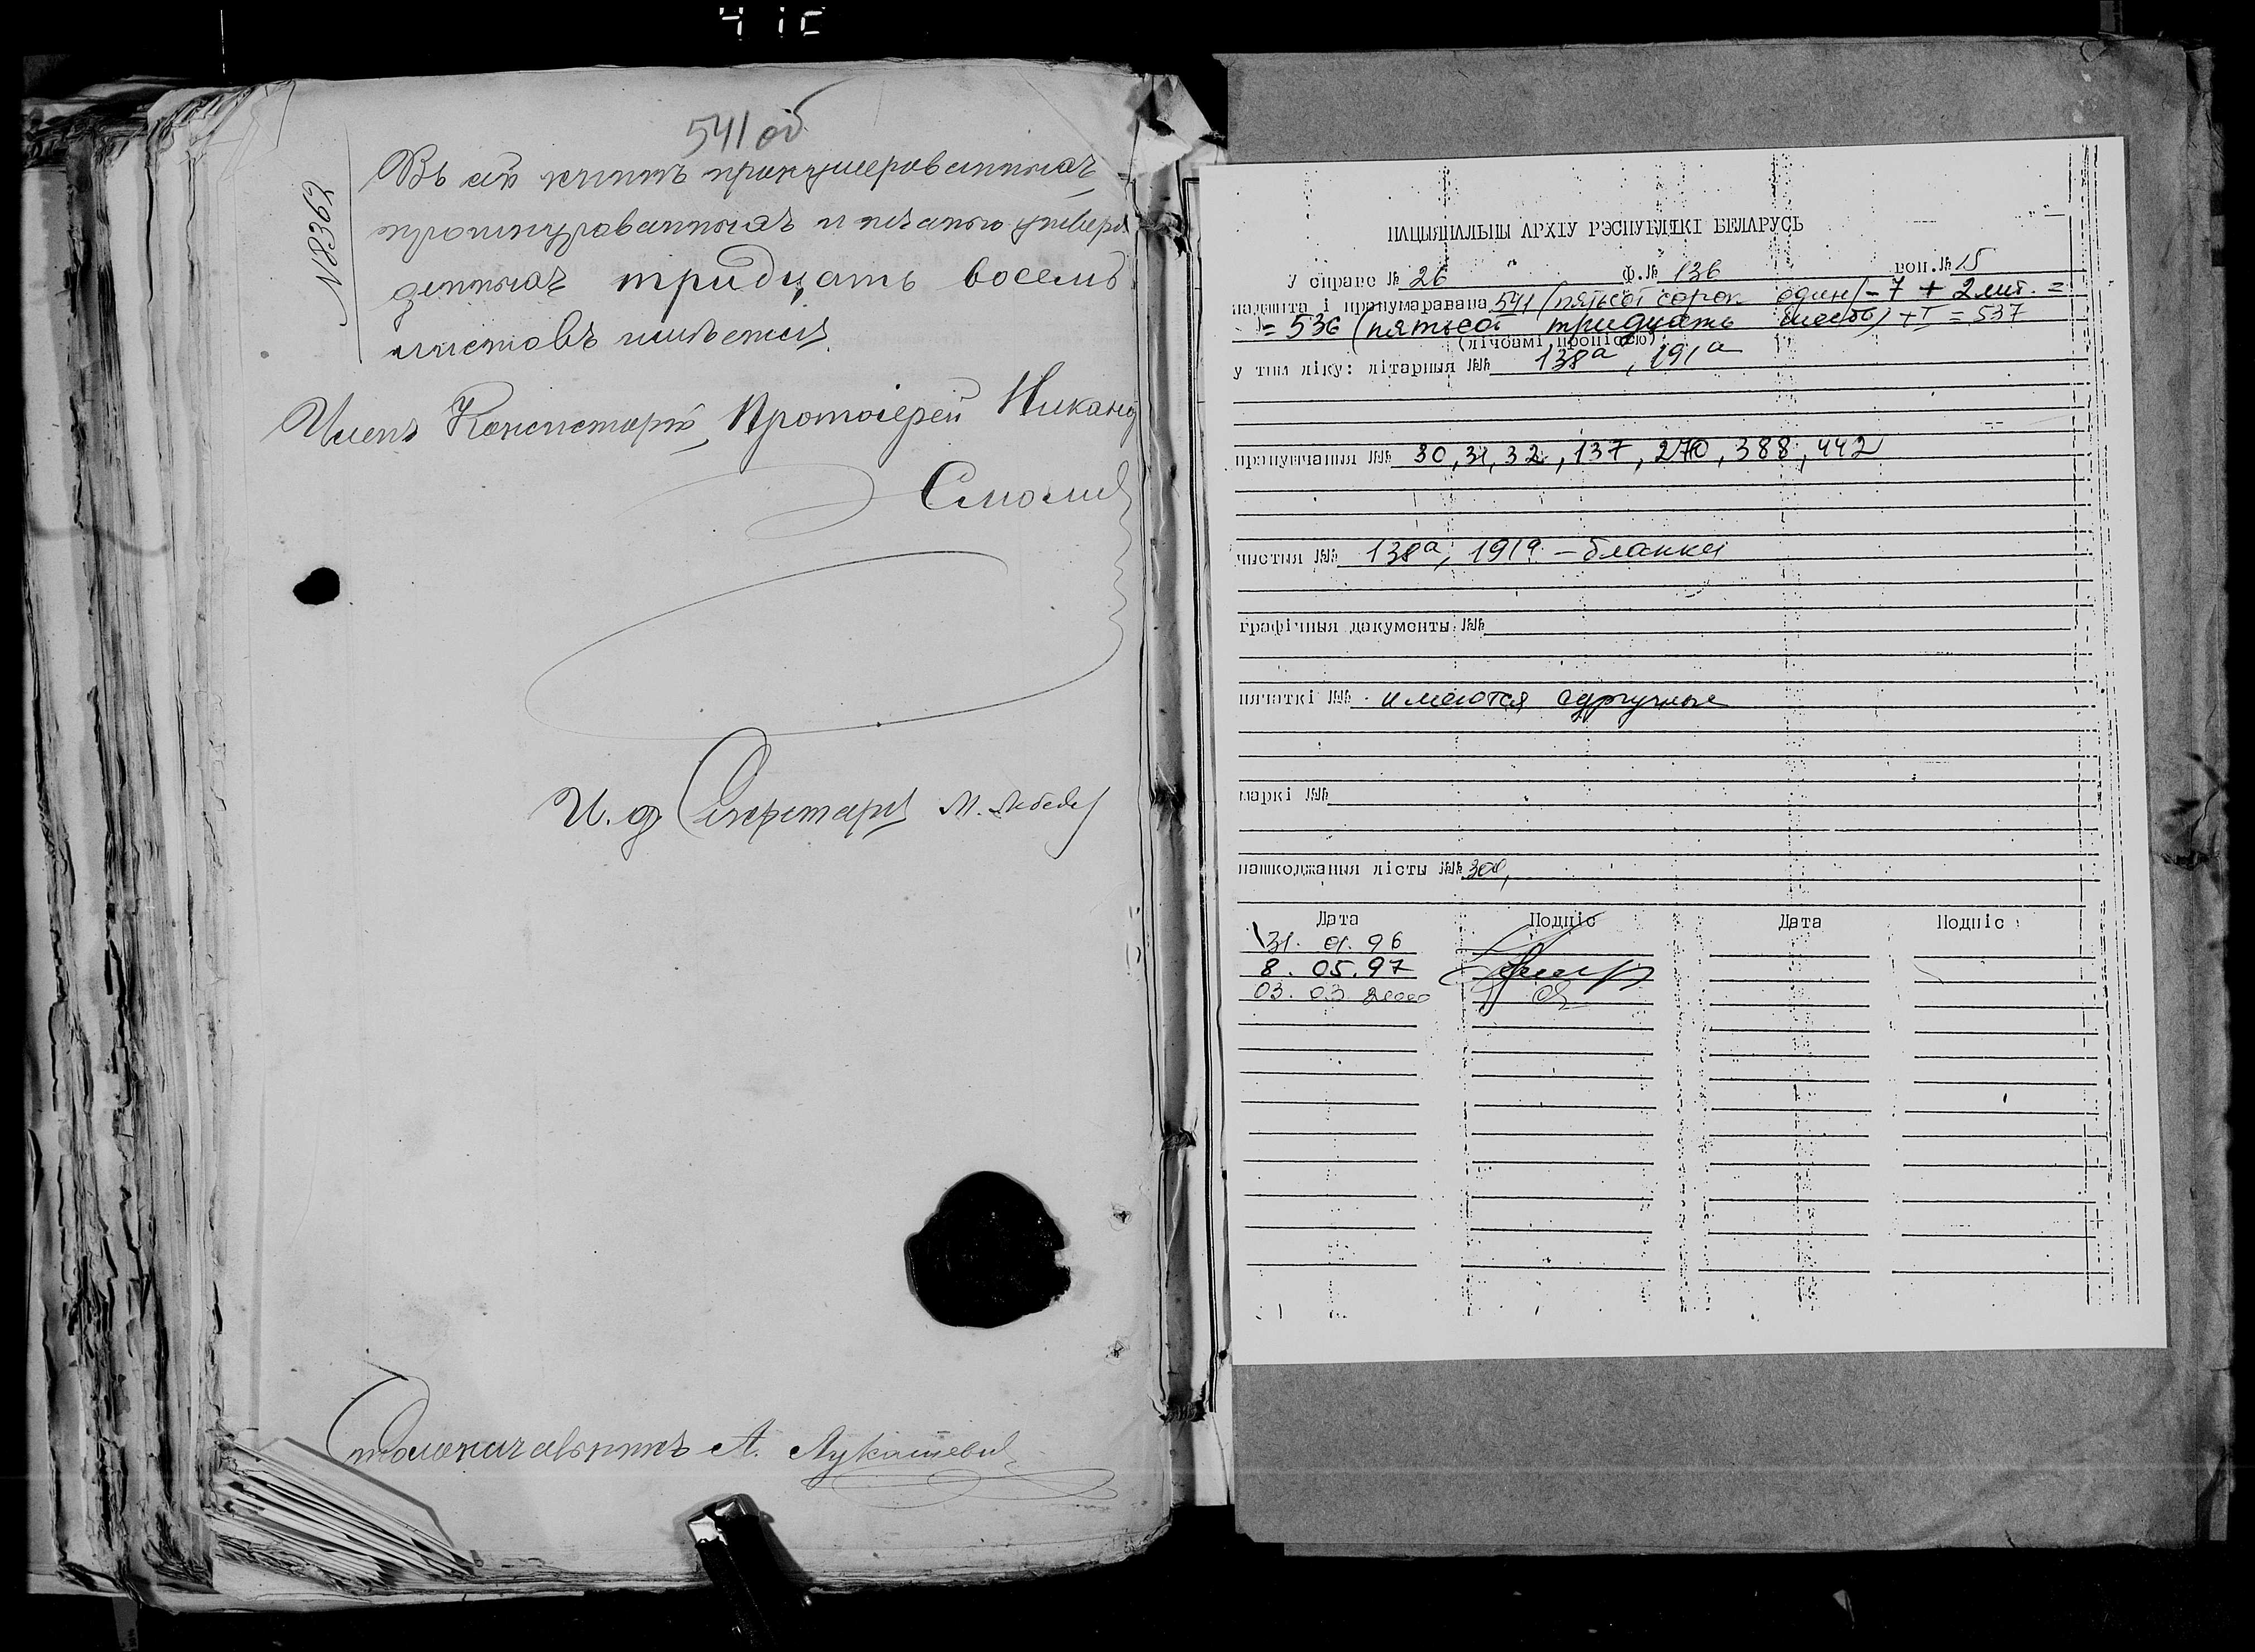 541 об
№ 8362
Въ сей книгѣ пронумерованныхъ,
прошнурованныхъ и печатью утверж
денныхъ тридцать восемь
листовъ имѣется
Членъ Консисторіи, Протоіерей Никанд
Смоли
И. д. Секретаря М. Лебеде
Столоначальникъ А. Лукашеви
НАЦЫЯНАЛЬНЫ АРХІУ РЭСПУБЛІКІ БЕЛАРУСЬ
У справе № 26 Ф.№ 136 воп.№ 15
падшыта і пранумаравана 541 (пятьсот сорок один) - 7 + 2 лит. =
= 536 (пятьсот тридцать шесть) + I = 537
(лічбамі, пропіссю)
у тым ліку: літарныя №№ 138а, 191а
прапушчаныя №№ 30, 31, 32, 137, 270, 388, 442
чыстыя №№ 138а, 191а - бланки
графічныя дакументы №№
пячаткі №№ имеются сургучные
маркі №№
пашкоджаныя лісты №№
Дата Подпіс Дата Подпіс
31. 01. 96
8. 05. 97
03. 03. 2000